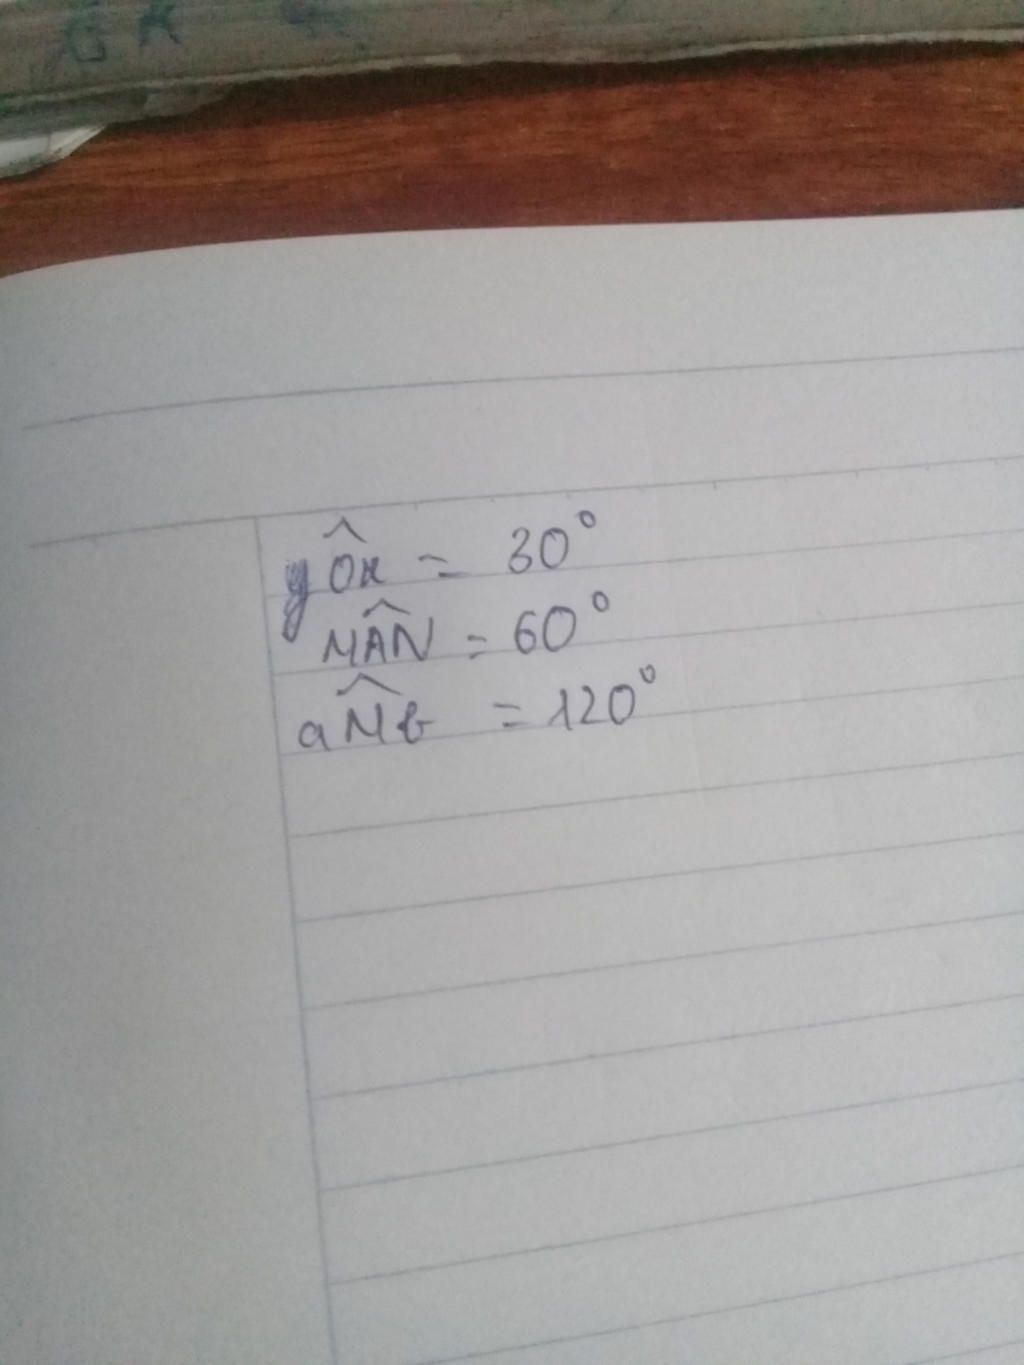 yÔx = 30°
MÂN = 60°
aM̂b = 120°